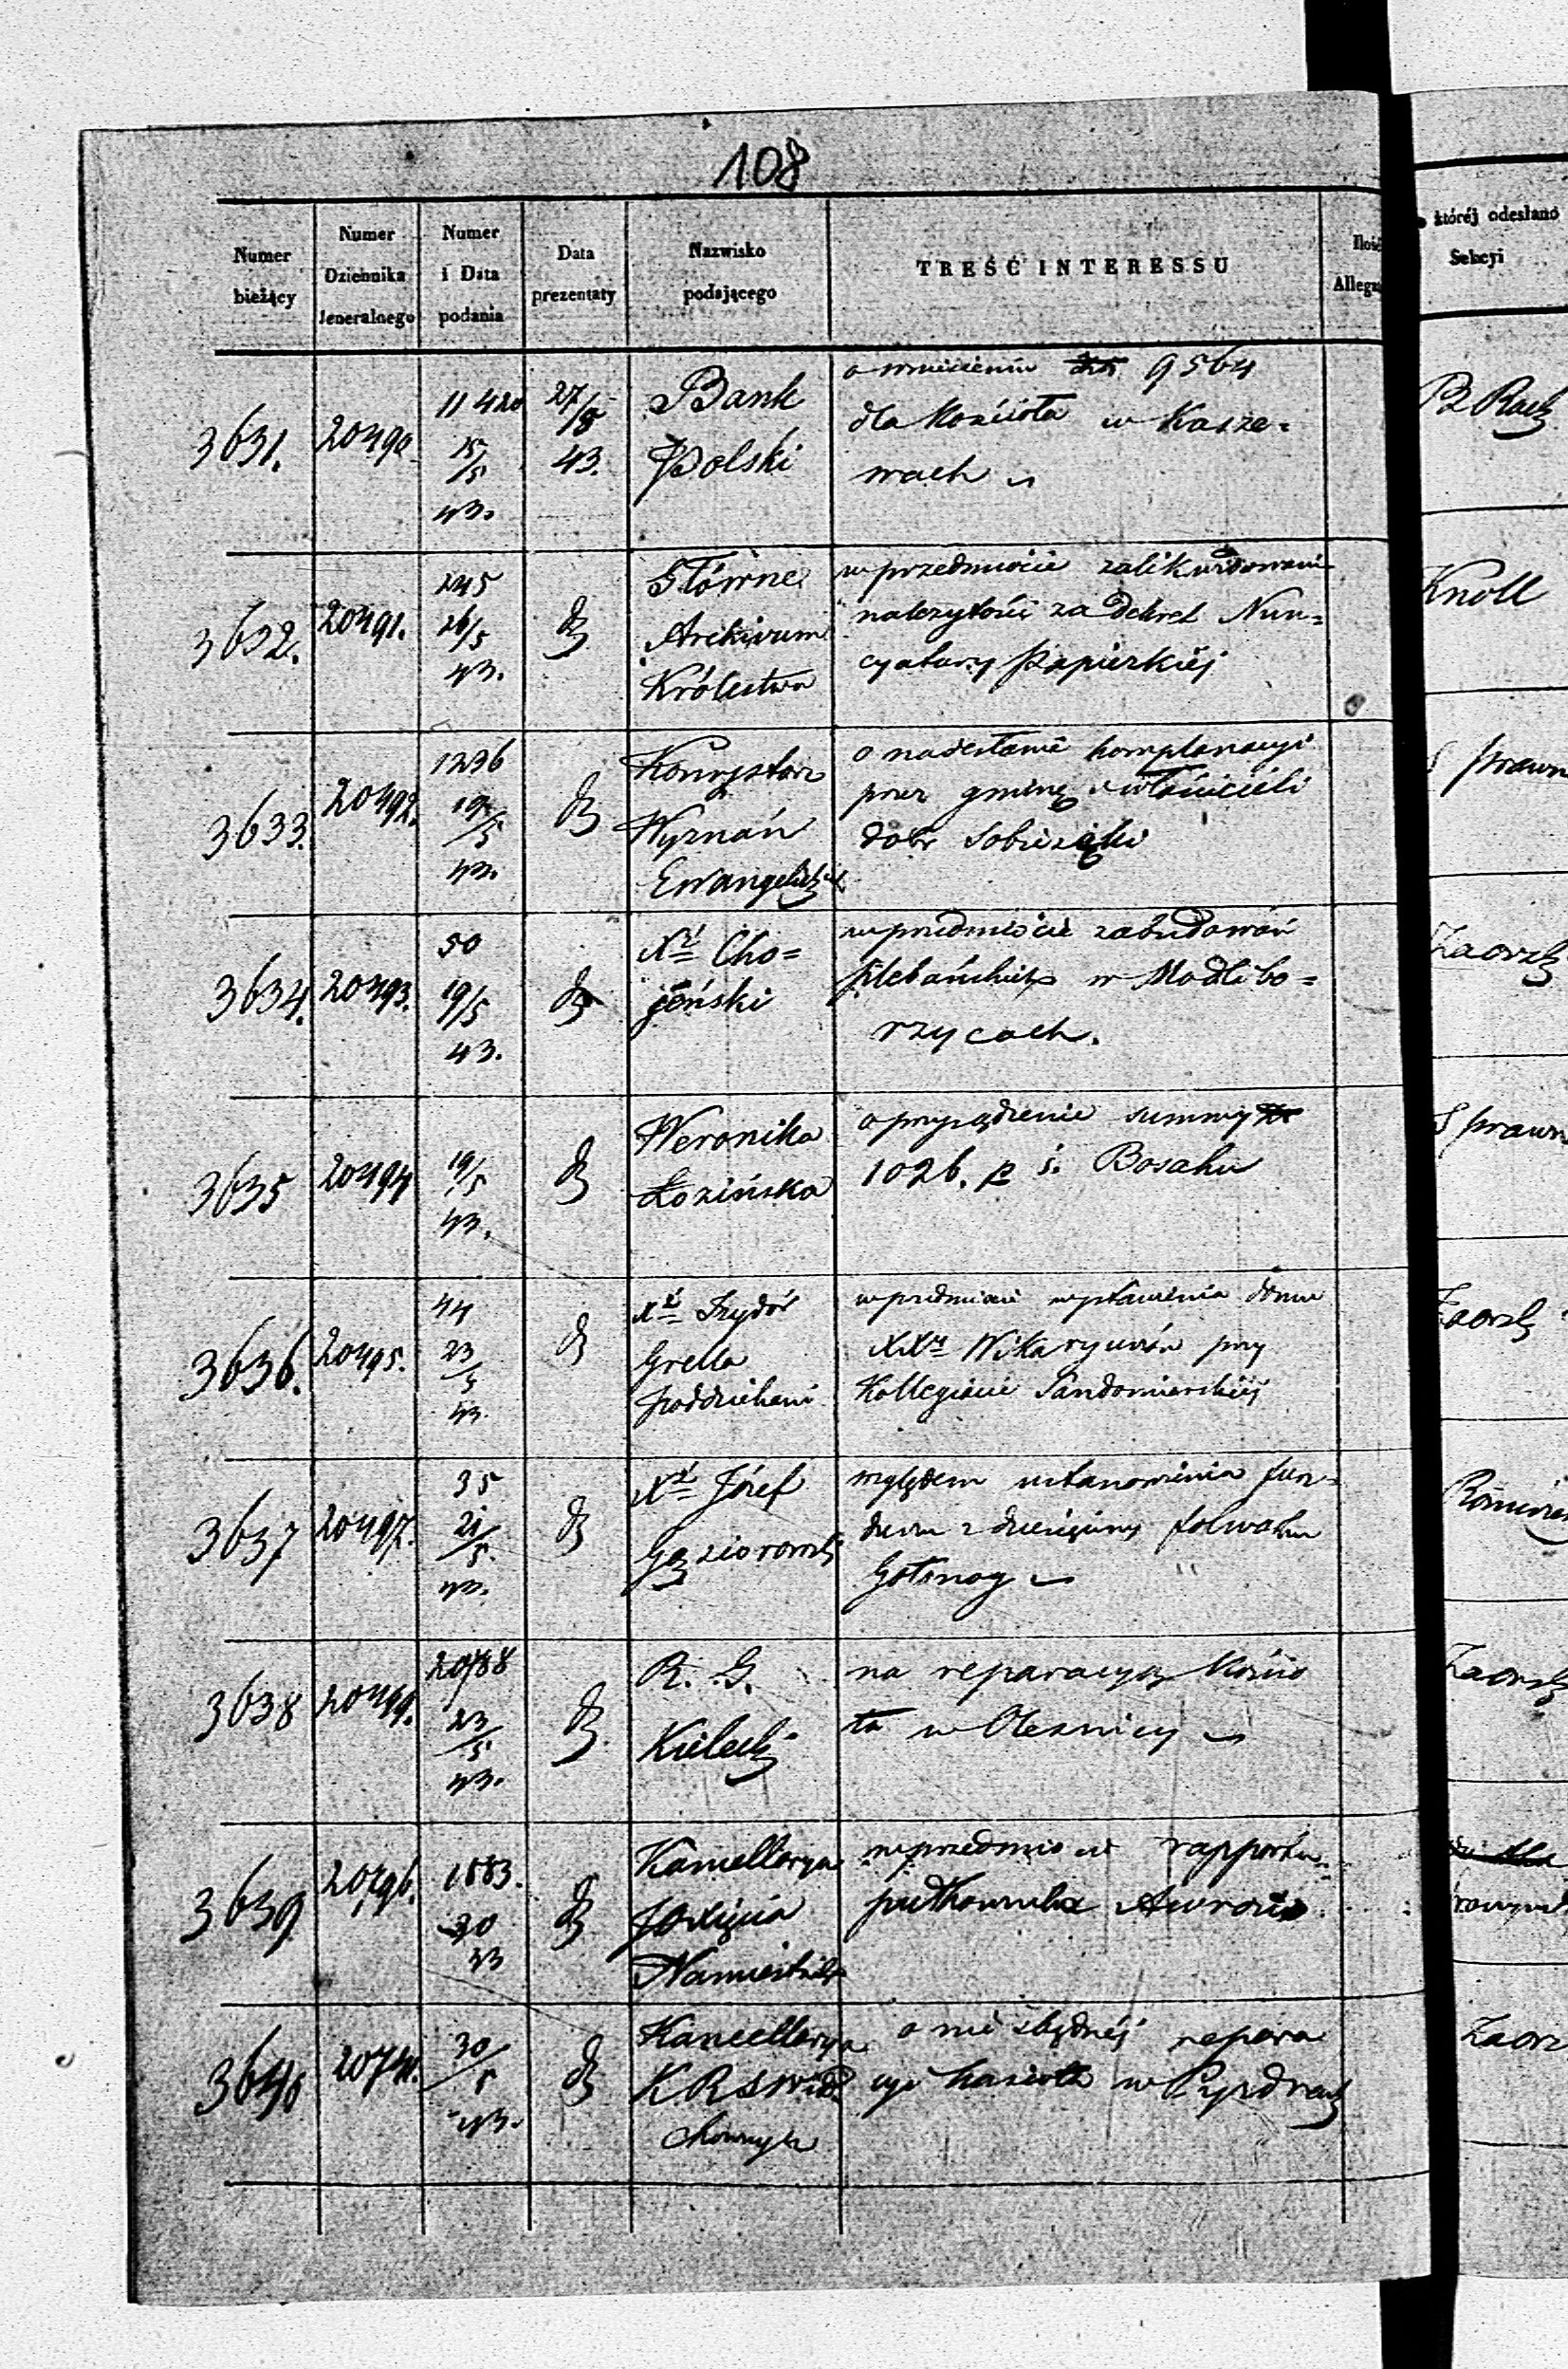 108
Numer bieżący
Numer Dziennika Jeneralnego
Numer i Data podania
Data prezentaty
Nazwisko podającego
TREŚĆ INTERESSU
Ilość
której odesłano Sekcyi
3631.
20490
11420
15/5
43.
27/5
43.
Bank
Polski
o 9564
dla Kościoła w Kasze=
wach
3632.
20491.
245
26/5
43.
Główne
Archivum
Królestwa
w przedmiocie zalikwidowani
należytości za Dekret Nun=
cyatury Papiezkiéj
Knoll
3633.
20492.
1236
19/5
43.
Konsystorz
Wyznań
o nadesłanie komplanacyi
przez gminę właścicieli
dobr Sobieseki
3634.
20493.
50
19/5
43.
Xż Cho=
jeński
w przedmiocie zabudowań
plebańskich w Modlibo=
rzycach.
3635
20494
19/5
43.
Weronika
Łozińska
o przysądzenie summy
1026. p ś. Bosaku
3636.
20495.
44
23/5
43
Xż Izydór
Grella
w przedmiocie wystawienia domu
XXży Wikaryuszów przy
Kollegiacie Sandomierskiéj
3637
20497.
35
21/5
43.
Xż Józef
Gąsiorowski
względem ustanowienia fun=
duszu z dziesięciny folwarku
Gołonog
3638
20499.
20788
23/5
43.
R. G.
Kielecki
na reparacyą Kościo
ła w Olesnicy
3639
20496.
1883.
20
43
Kancellarya
JO Xięcia
Namiestnika
w przedmiocie rapportu
pułkownika
3640
20741.
20/5
43.
Kancellarya
K R S W i D
chownych
o niezbędnéj repara
cyi kościoła w Pyzdrach